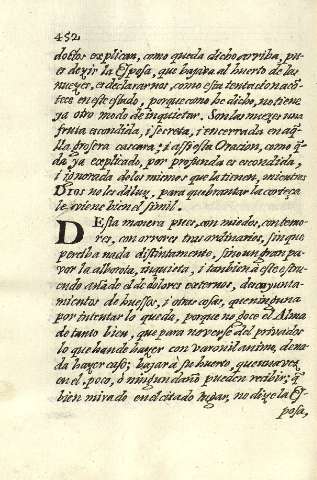 452
doctos explican, como queda dicho arriba, pu-
es dezir la Esposa, que bajara al huerto de las
nuezes, es declararnos, como esta tentacion acõ-
tece en este estado, porque como he dicho, no tiene
ya otro modo de inquietar. Son las nuezes una
fruta escondida, i secreta, i encerrada en aq̃-
lla grosera cascara; i assi esta Oracion, como q̃-
da ya explicado, por profunda es escondida,
i ignorada de los mismos que la tienen, mientras
DIOS no les dà luz, para quebrantar la corteça
le viene bien el simil.
DEsta manera pues, con miedos, con temo-
res, con orrores tras ordinarios, sin que
perciba nada distintamente, sino un gran pa-
vor la alborota, inquieta, i tambien à este estru-
endo añade el de dolores externos, descoyunta-
mientos de huessos, i otras cosas, que ninguna
por intentar lo queda, porque no goce el Alma
de tanto bien, que para no verse del privados
lo que han de hazer con varonil animo, de na-
da hazer caso; bajar à su huerto, que una vez
en el, poco, ò ningun daño pueden recibir; q̃
bien mirado en el citado lugar, no dize la Es-
posa,